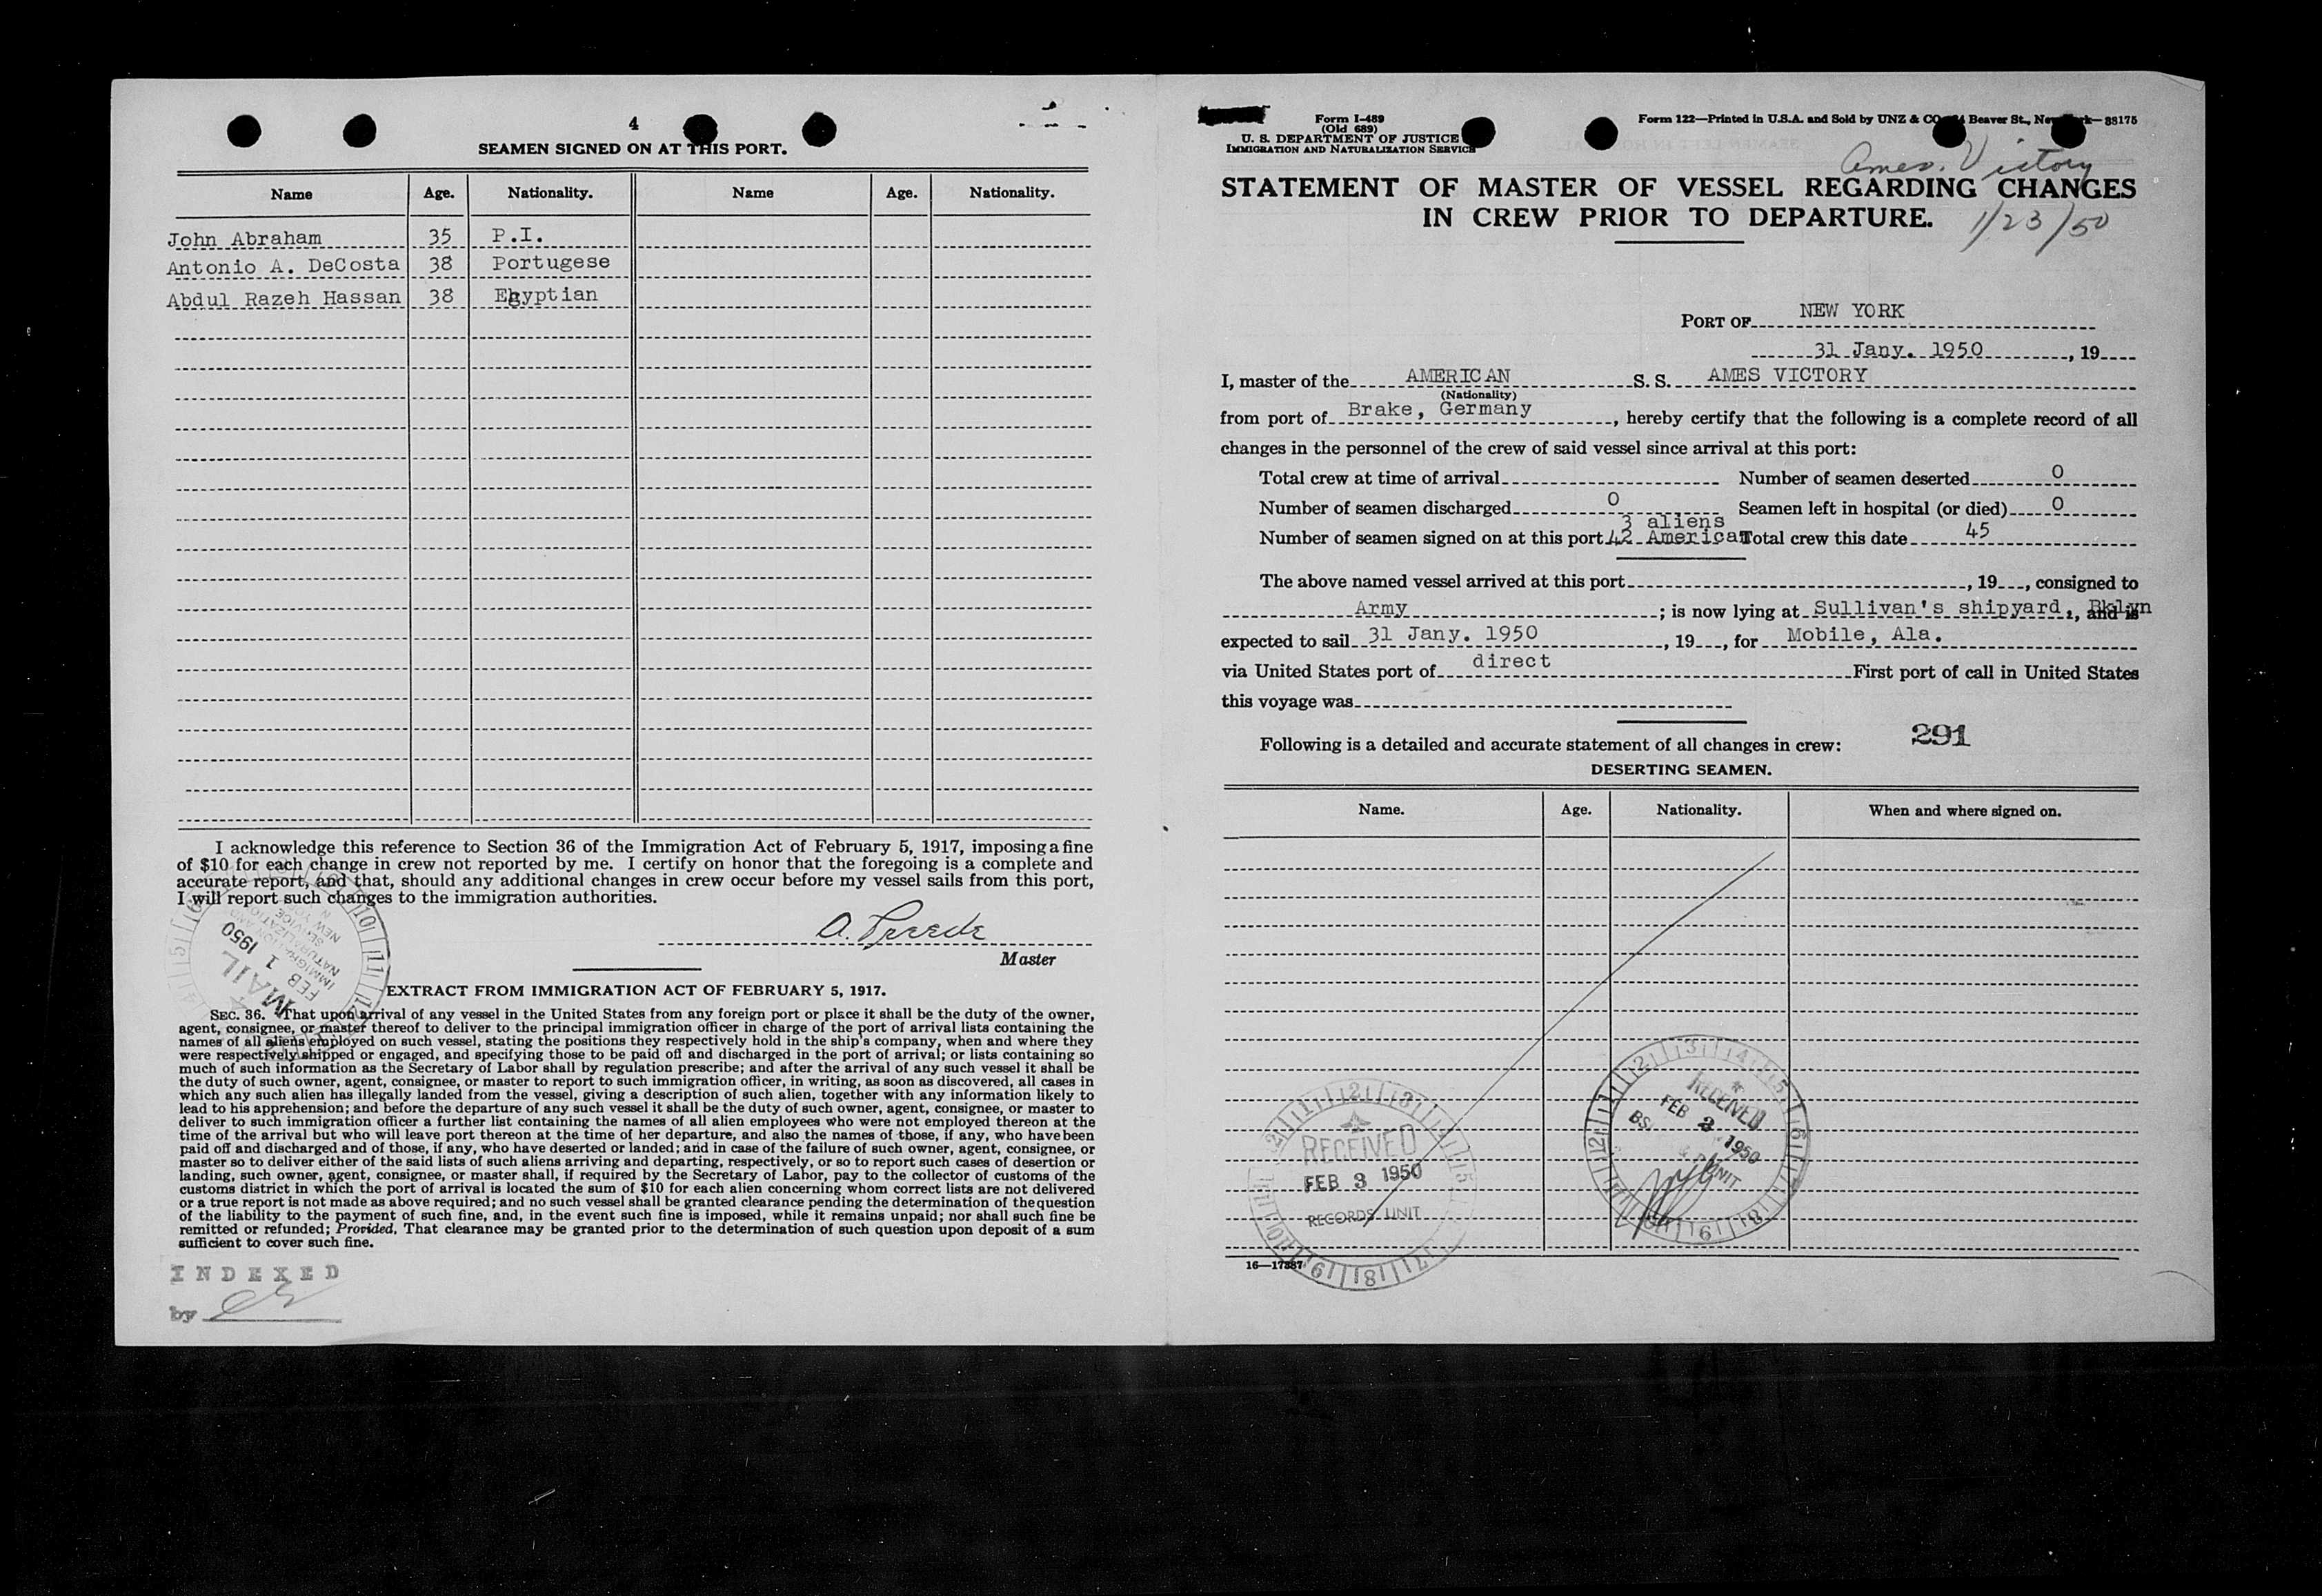 4
SEAMEN SIGNED ON AT THIS PORT.
Name Age. Nationality. Name Age. Nationality.
John Abraham 35 P.I.
Antonio A. DeCosta 38 Portugese
Abdul Razeh Hassan 38 Egyptian
I acknowledge this reference to Section 36 of the Immigration Act of February 5, 1917, imposing a fine
of $10 for each change in crew not reported by me. I certify on honor that the foregoing is a complete and
accurate report, and that, should any additional changes in crew occur before my vessel sails from this port,
I will report such changes to the immigration authorities.
Master
MAIL
FEB 1 1950
EXTRACT FROM IMMIGRATION ACT OF FEBRUARY 5, 1917.
SEC. 36. That upon arrival of any vessel in the United States from any foreign port or place it shall be the duty of the owner,
agent, consignee, or master thereof to deliver to the principal immigration officer in charge of the port of arrival lists containing the
names of all aliens employed on such vessel, stating the positions they respectively hold in the ship's company, when and where they
were respectively shipped or engaged, and specifying those to be paid off and discharged in the port of arrival; or lists containing so
much of such information as the Secretary of Labor shall by regulation prescribe; and after the arrival of any such vessel it shall be
the duty of such owner, agent, consignee, or master to report to such immigration officer, in writing, as soon as discovered, all cases in
which any such alien has illegally landed from the vessel, giving a description of such alien, together with any information likely to
lead to his apprehension; and before the departure of any such vessel it shall be the duty of such owner, agent, consignee, or master to
deliver to such immigration officer a further list containing the names of all alien employees who were not employed thereon at the
time of the arrival but who will leave port thereon at the time of her departure, and also the names of those, if any, who have been
paid off and discharged and of those, if any, who have deserted or landed; and in case of the failure of such owner, agent, consignee, or
master so to deliver either of the said lists of such aliens arriving and departing, respectively, or so to report such cases of desertion or
landing, such owner, agent, consignee, or master shall, if required by the Secretary of Labor, pay to the collector of customs of the
customs district in which the port of arrival is located the sum of $10 for each alien concerning whom correct lists are not delivered
or a true report is not made as above required; and no such vessel shall be granted clearance pending the determination of the question
of the liability to the payment of such fine, and, in the event such fine is imposed, while it remains unpaid; nor shall such fine be
remitted or refunded; Provided, That clearance may be granted prior to the determination of such question upon deposit of a sum
sufficient to cover such fine.
INDEXED
by
Form I-489
(Old 689)
U. S. DEPARTMENT OF JUSTICE
IMMIGRATION AND NATURALIZATION SERVICE
Form 122—Printed in U.S.A. and Sold by UNZ & CO Beaver St., New York—88175
Ames. Victory
STATEMENT OF MASTER OF VESSEL REGARDING CHANGES
IN CREW PRIOR TO DEPARTURE.
1/23/50
PORT OF NEW YORK
31 Jany. 1950, 19
I, master of the AMERICAN S. S. AMES VICTORY
(Nationality)
from port of Brake, Germany, hereby certify that the following is a complete record of all
changes in the personnel of the crew of said vessel since arrival at this port:
Total crew at time of arrival Number of seamen deserted 0
Number of seamen discharged 0 Seamen left in hospital (or died) 0
3 aliens
Number of seamen signed on at this port 42 American Total crew this date 45
The above named vessel arrived at this port, 19, consigned to
Army; is now lying at Sullivan's shipyard, Bklyn, and is
expected to sail 31 Jany. 1950, 19, for Mobile, Ala.
via United States port of direct First port of call in United States
this voyage was
291
Following is a detailed and accurate statement of all changes in crew:
DESERTING SEAMEN.
Name. Age. Nationality. When and where signed on.
RECEIVED
FEB 3 1950
RECORDS UNIT
RECEIVED
FEB 3 1950
UNIT
16—17387